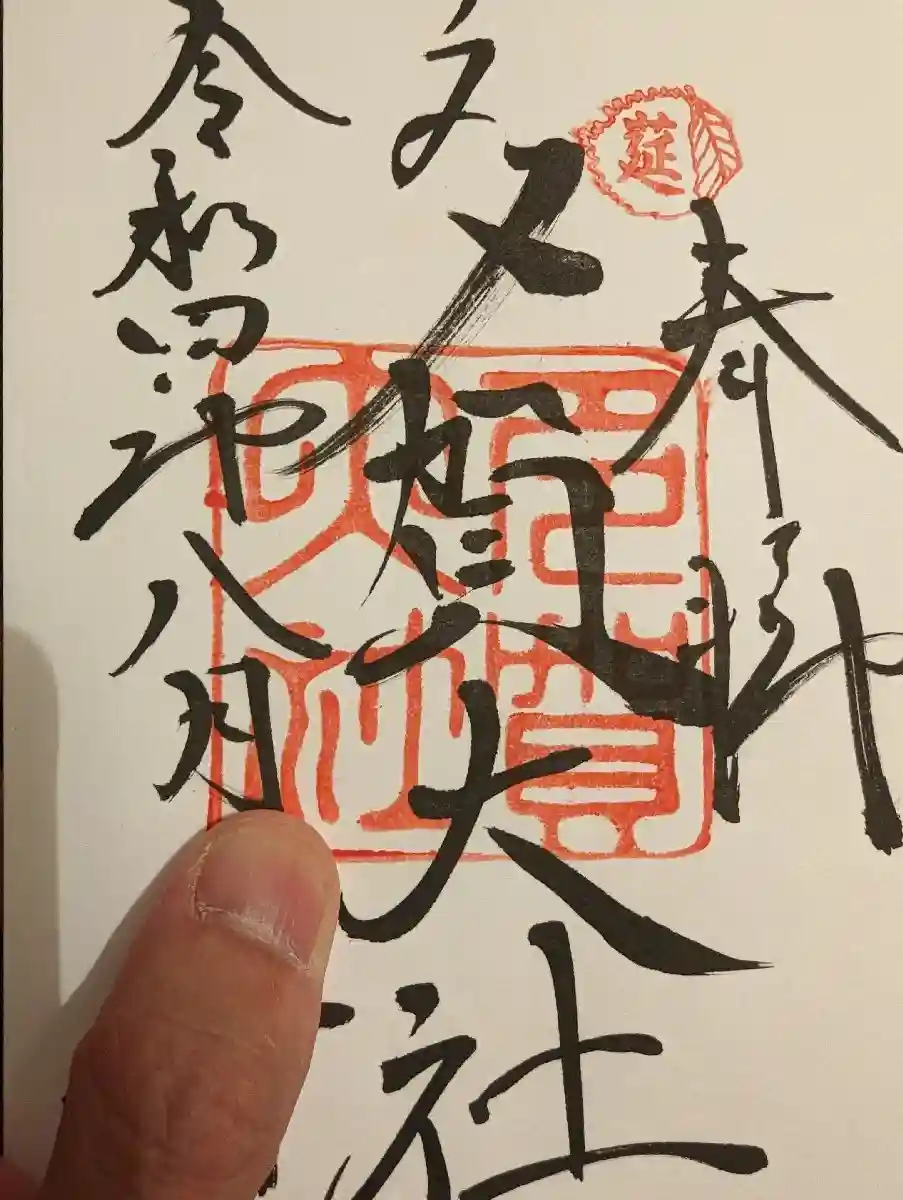 莚
奉拝
多賀大社
多賀大社
令和四年八月